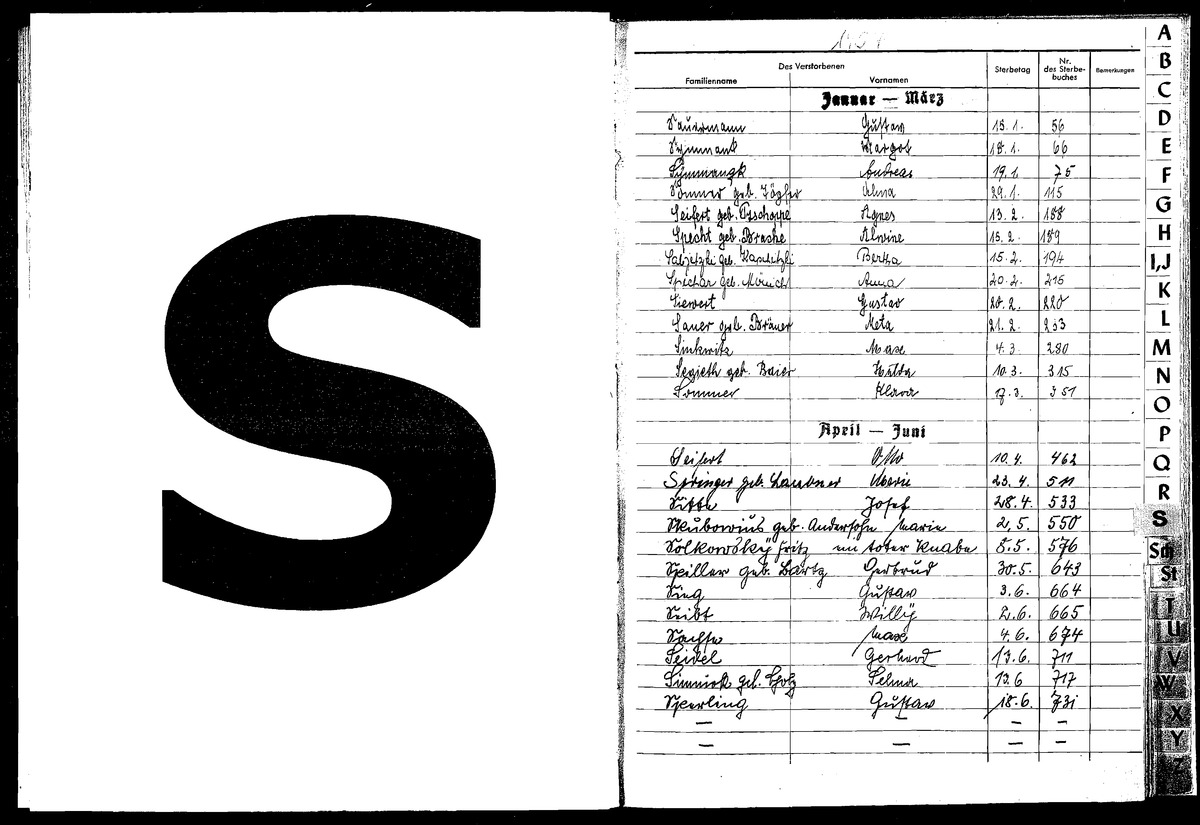 S
Des Verstorbenen
Familienname Vornamen Sterbetag Nr. des Sterbe-buches Bemerkungen
Januar — März
Sauermann Gustav 15. 1. 56
Symmank Margot 18. 1. 66
Symmangk Andreas 19. 1. 75
Sommer geb. Töpfer Alma 29. 1. 115
Seifert geb. Tzschoppe Agnes 13. 2. 188
Specht geb. Brashe Alwine 15. 2. 189
geb. Berta 15. 2. 194
Spichar geb. Mönich Anna 20. 2. 215
Siewert Gustav 20. 2. 220
Sauer geb. Bräuer Meta 21. 2. 233
Sinkwitz Max 4. 3. 280
Segieth geb. Baier Hulda 10. 3. 315
Sommer Klara 17. 3. 351
April — Juni
Seifert Otto 10. 4. 462
Springer geb. Laubner Marie 23. 4. 511
Sitte Josef 28. 4. 533
Skubowius geb. Andersohn Marie 2. 5. 550
Solkowsky Fritz ein toter Knabe 8. 5. 576
Spiller geb. Bartz Gertrud 30. 5. 643
Sieg Gustav 3. 6. 664
Seibt Willy 2. 6. 665
Sachse Max 4. 6. 674
Seidel Gerhard 13. 6. 711
Simniok geb. Scholz Selma 13. 6 717
Sperling Gustav 18. 6. 731
— — — —
— — — —
A
B
C
D
E
F
G
H
I,J
K
L
M
N
O
P
Q
R
S
Sch
St
T
U
V
W
X
Y
Z